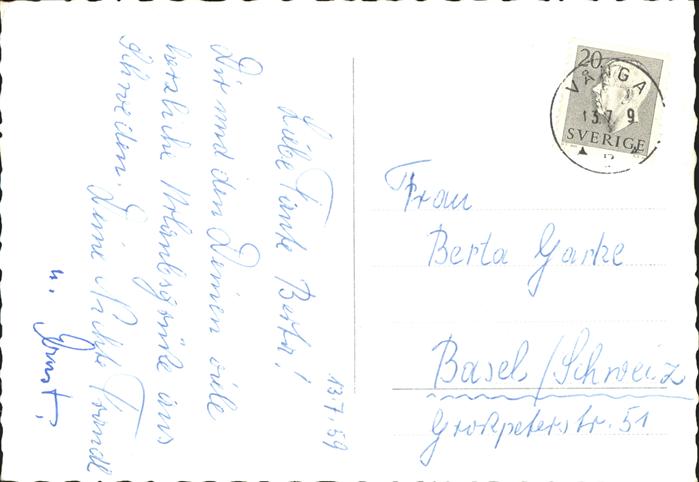 13.7.59
Liebe Tante Berta!
Dir und den Deinen viele
herzliche Urlaubsgrüße aus
Schweden. Deine Nichte Traudl
u. Ernst.
20
VÅNGA
13.7 9
SVERIGE
Frau
Berta Garke
Basel/Schweiz
Großpeterstr. 51